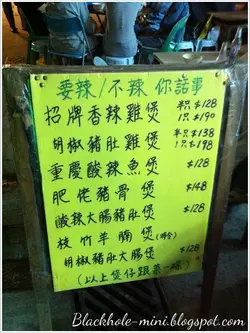 要辣/不辣 你話事
招牌香辣雞煲 半只 $128
1只 $190
胡椒豬肚雞煲 半只 $138
1只 $198
重慶酸辣魚煲 $128
肥佬豬骨煲 $148
酸辣大腸豬肚煲 $128
枝竹羊腩煲
胡椒豬肚大腸煲 $128
(以上煲仔跟菜一碟)
Blackhole-mini.blogspot.com